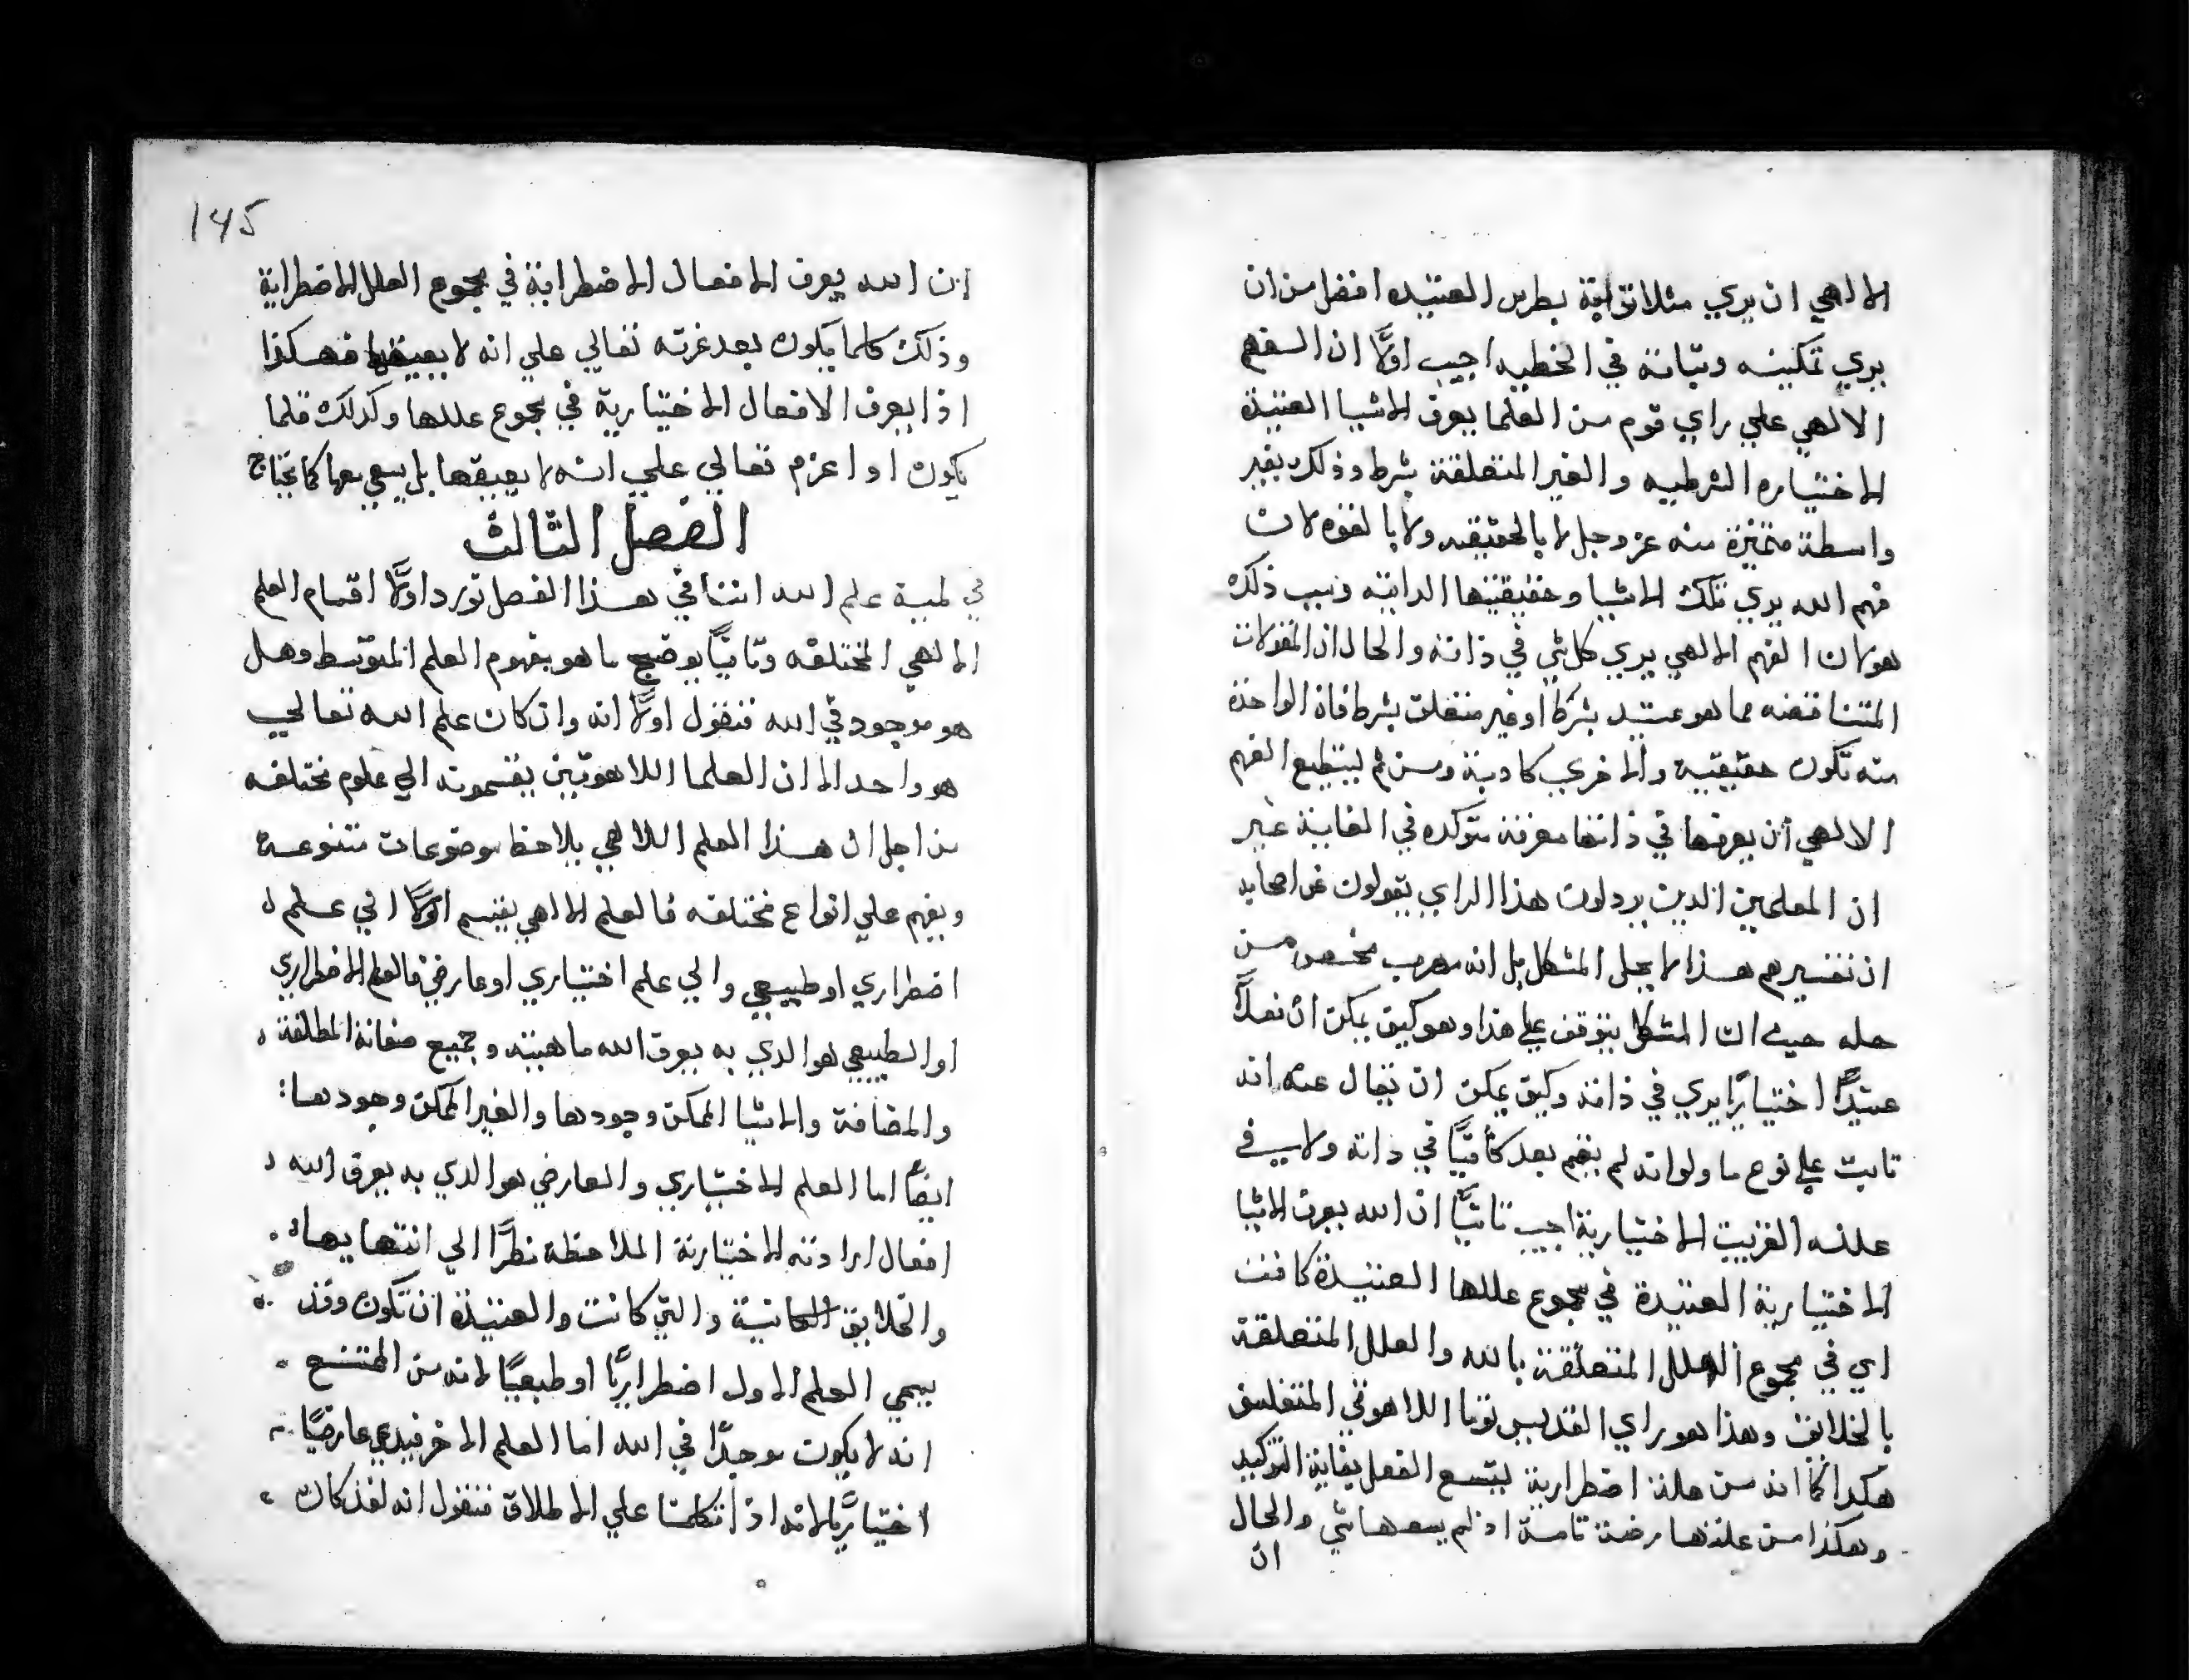 الالهي ان يري مثلا توبة بطرس العتيده افضل من ان
يري تمكينه وثباته في الخطيه اجيب اولًا ان الفهم
الالهي علي راي قوم من العلما يعرف الاشيا العتيدة
الاختياره الشرطيه والغير المتعلقة بشرط وذلك بغير
واسطة متميزة منه عز وجل لا بالحقيقه ولا بالقوه لان
فهم الله يري تلك الاشيا وحقيقتها الذاتيه وسبب ذلك
هو لان الفهم الالهي يري كل شي في ذاته والحال ان المقولات
المتناقضه مما هو عتيد بشرط او غير متعلق بشرط فان الواحدة
منه تكون حقيقيه والاخري كادبة ومن ثم ليستطيع الفهم
الالهي ان يعرفها في ذاتها معرفة متوكده في الغاية غير
ان المعلمين الذين يردلون هذا الراي يقولون عن اصحابه
ان تفسيرهم هذا لا يحل المشكل بل انه مهرب من
حله حيث ان المشكل يتوقف علي هذا وهو كيف يمكن ان فعلاً
عتيدًا اختياريًا يري في ذاته وكيف يمكن ان يقال عنه انه
تابت علي نوع ما ولو انه لم يقم بعد كأنيًا في ذاته ولا في
علته القريبة الاختيارية اجيب ثانيًا ان الله يعرف الاشيا
الاختيارية العتيدة في مجموع عللها العتيدة كافت
اي في مجموع العلل المتعلقة بالله والعلل المتعلقة
بالخلايق وهذا هو راي القديس توما اللاهوتي المتفلسف
هكذا كما انه من علة اضطرارية ليتسع الفعل بغاية التوكيد
وهكذا من علتها مرضة تامة اذ لم يمنعها شي والحال
ان
145
ان الله يعرف الافعال الاضطرابية في مجموع العلل الاضطرابية
وذلك كلما يكون بعد عزمه تعالي علي انه لا يعيقها فهكذا
اذا يعرف الافعال الاختيارية في مجموع عللها وكذلك قلما
يكون اوا عزم تعالي علي انه لا يعيقها بل يسعي معها كما تحتاج
الفصل الثالث
في لمية علم الله اننا في هذا الفصل نورد اولًا اقسام العلم
الالهي المختلفه وثانيًا يوضح ما هو مفهوم العلم المتوسط وهل
هو موجود في الله فنقول اولًا انه وان كان علم الله تعالي
هو واحد الا ان العلما اللاهوتيين يقسمونه الي علوم مختلفه
من اجل ان هذا العلم اللالهي يلاحظ موضوعات متنوعه
ويفهم علي انواع مختلفه فالعلم الالهي يقسم اولًا الي علم
اضطراري او طبيعي والي علم اختياري او عارضي فالعلم الاضطراري
او الطبيعي هو الدي به يعرف الله ماهيته وجميع صفاته المطلقة
والمضافة والاشيا الممكن وجودها والغير الممكن وجودها:
ايضًا اما العلم الاختياري والعارضي هو الدي به يعرف الله
افعال ارادته الاختيارية الملاحظة نظرًا الي انتهايها.
والخلايق الكائنة والتي كانت والعتيدة ان تكون وقد
يسمي العلم الاول اضطراريًا او طبعيًا لانه من الممتنع
انه لا يكون موجدًا في الله اما العلم الاخر فيدعي عارضيًا
اختياريًا لانه اذا تكلمنا علي الاطلاق فنقول انه لقد كان